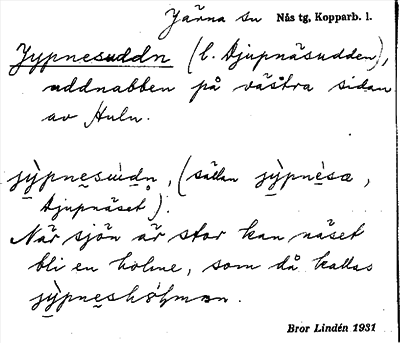 Järna sn Nås tg, Kopparb. l.
Jypnesuddn (l. Djupnäsudden),
uddnabben på västra sidan
av Huln.
jỳpnesùdn, (sällan jỳpnèsæ,
Djupnäset).
När sjön är stor kan näset
bli en holme, som då kallas
jỳpneshòḷmən.
Bror Lindén 1931